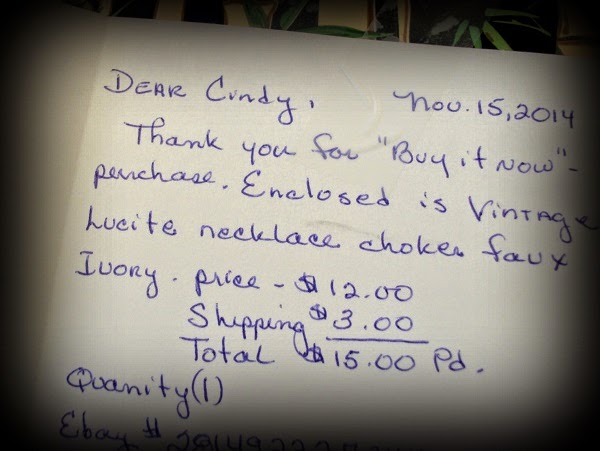 DEAR Cindy, Nov. 15, 2014
Thank you for "Buy it Now" -
purchase. Enclosed is Vintage
Lucite necklace choker faux
Ivory. price - $12.00
Shipping $3.00
Total $15.00 Pd.
Quanity (1)
Ebay #